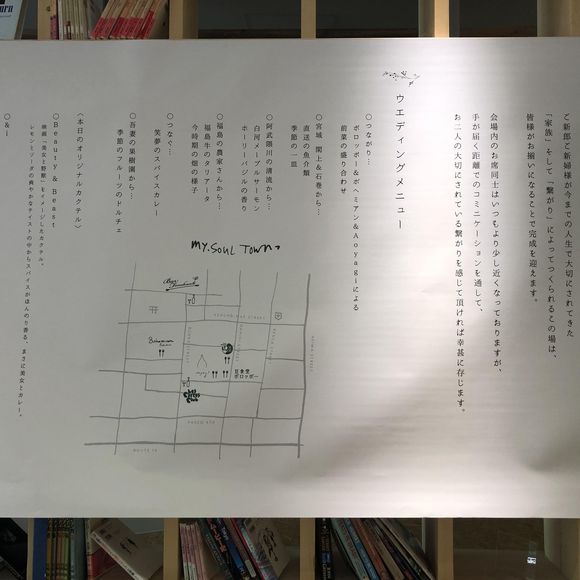 ご新郎ご新婦様が今までの人生で大切にされてきた
「家族」そして「繋がり」によってつくられるこの場は、
皆様がお揃いになることで完成を迎えます。
会場内のお席同士はいつもより少し近くなっておりますが、
手が届く距離でのコミニケーションを通して、
お二人の大切にされている繋がりを感じて頂ければ幸甚に存じます。
ウエディングメニュー
○つながり…
ポロッポー&ボヘミアン&Aoyagiによる
前菜の盛り合わせ
○宮城 閖上&石巻から…
直送の魚介類
季節の一皿
○阿武隈川の清流から…
白河メープルサーモン
ホーリーバジルの香り
○福島の農家さんから…
福島牛のタリアータ
今時期の畑の様子
○つなぐ…
笑夢のスパイスカレー
○吾妻の果樹園から…
季節のフルーツのドルチェ
〈本日のオリジナルカクテル〉
○Beauty & Beast
映画「美女と野獣」をイメージしたカクテル。
レモンとソーダの爽やかなテイストの中からスパイスがほんのり香る、まさに美女とカレー。
○&i
MY.SOUL TOWN
Bohemian
日食堂
ポロッポー
PASEO 470
ROUTE 13